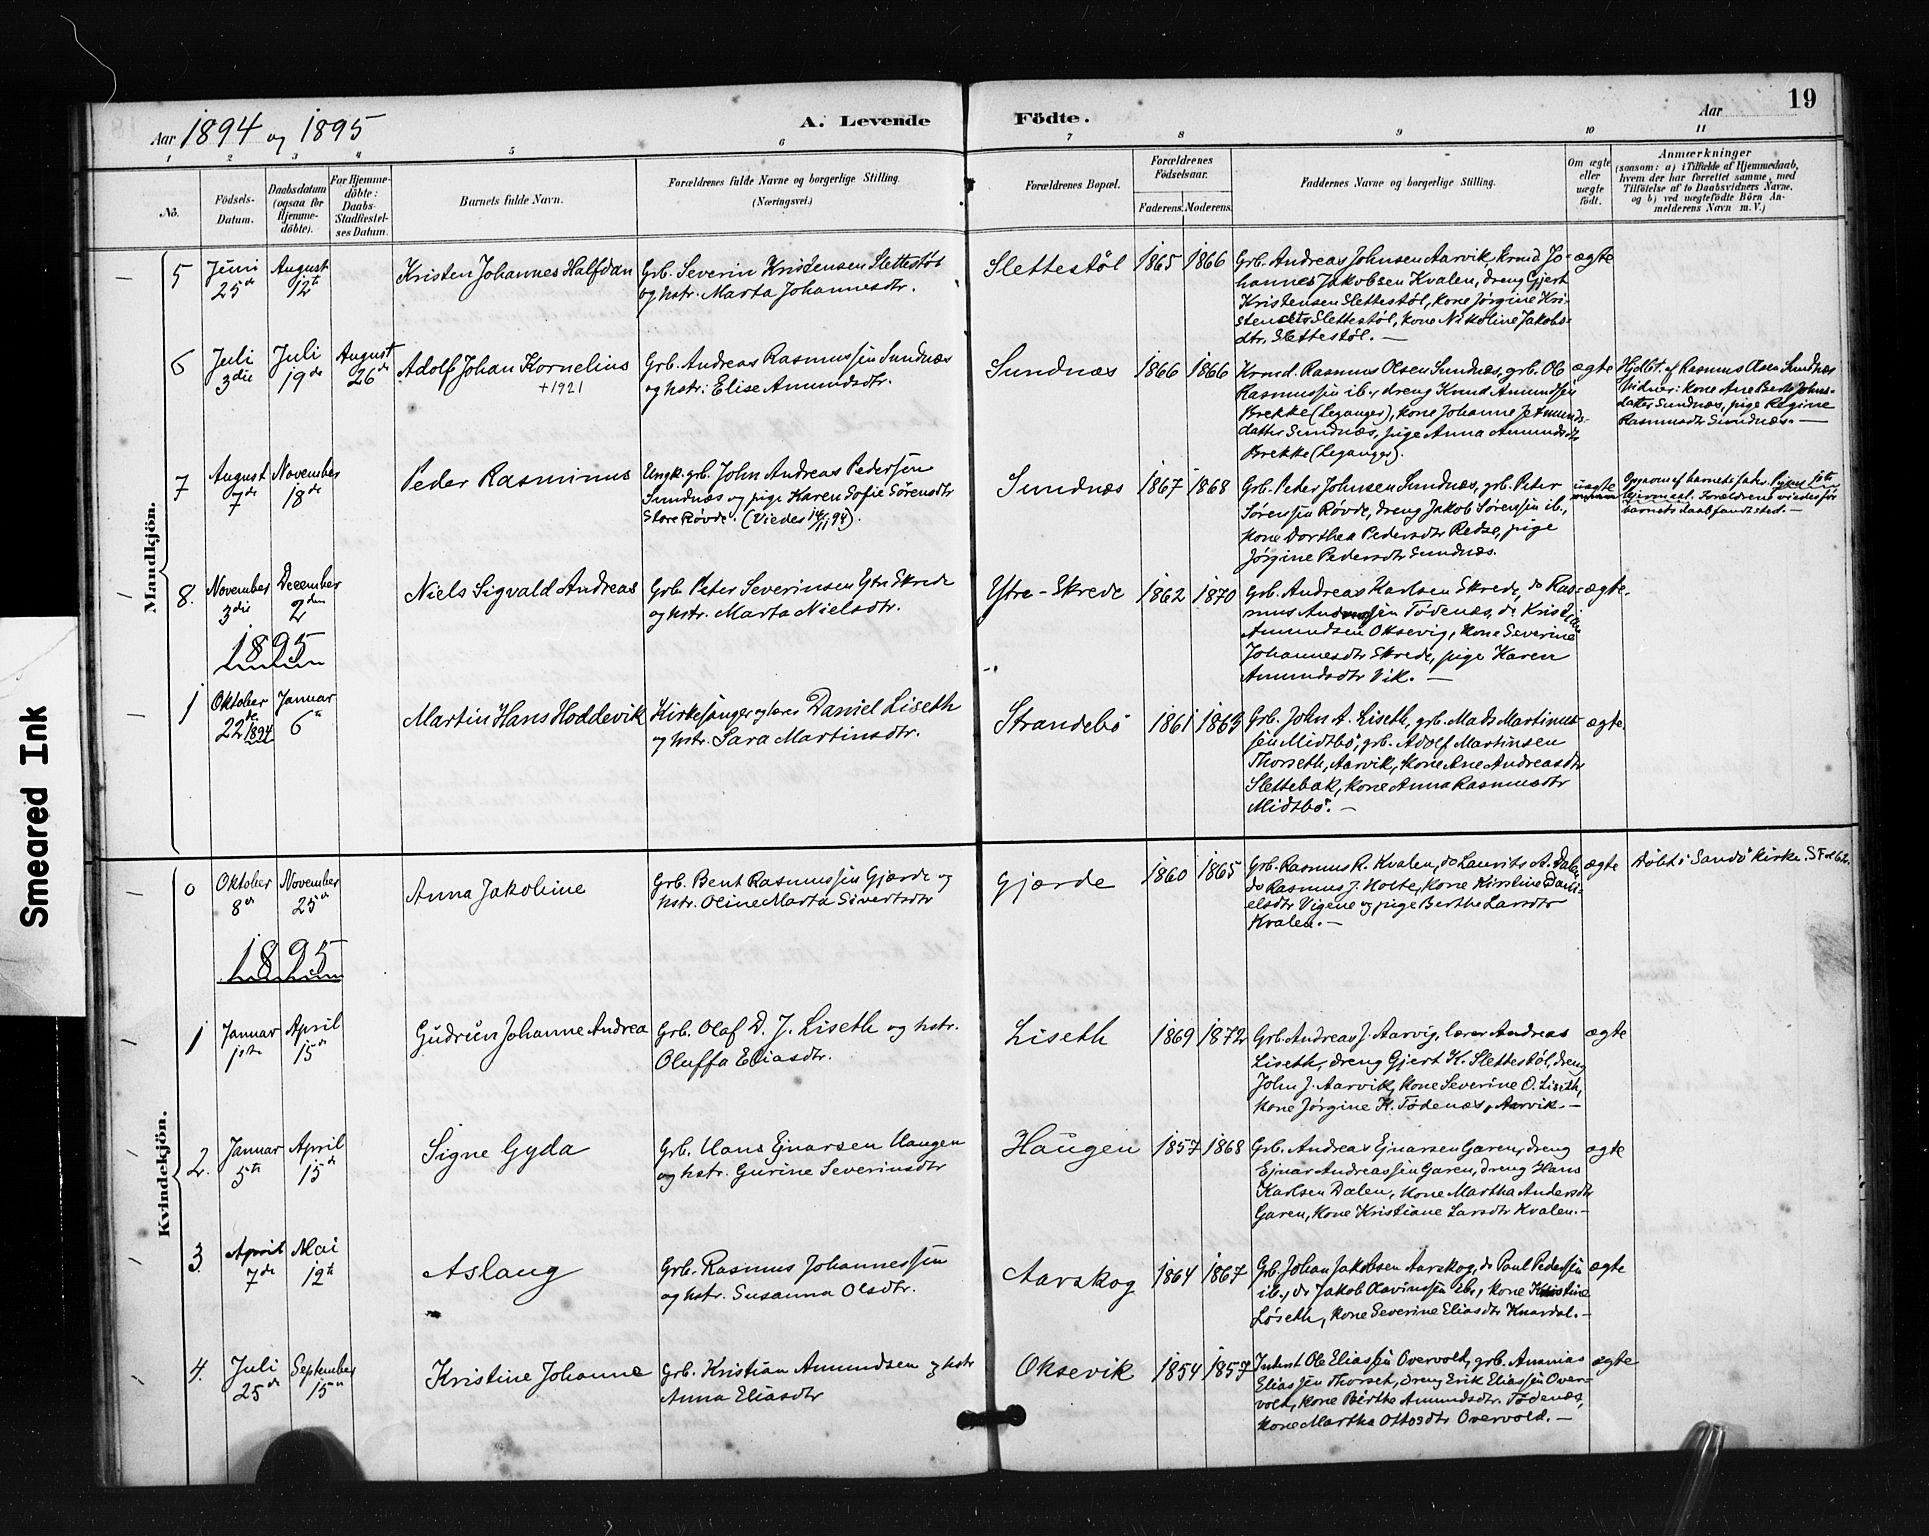 Aar 1894 og 1895
A. Levende Födte.
Aar 19
1 2 3 4 5 6 7 8 9 10 11
Nö.
Födsels-
Datum.
Daabsdatum
(ogsaa for
Hjemme-
döbte).
For Hjemme-
döbte:
Daabs-
Stadfæstel-
ses Datum.
Barnets fulde Navn.
Forældrenes fulde Navne og borgerlige Stilling.
(Næringsvei.)
Forældrenes Bopæl.
Forældrenes
Födselsaar.
Faderens. Moderens.
Faddernes Navne og borgerlige Stilling.
Om ægte
eller
uægte
födt.
Anmærkninger
(saasom: a) i Tilfælde af Hjemmedaab,
hvem der har forrettet samme, med
Tilföielse af to Daabsvidners Navne,
og b) ved uægtefödte Börn An-
melderens Navn m. V.)
Mandkjön.
5
Juni
25de
August
12te
Kristen Johannes Halfdan
Grb. Severin Kristensen Slettestøl
og hstr. Marta Johannesdtr.
Slettestøl
1865 1866
Grb. Andreas Johnsen Aarvik, krmd Jo-
hannes Jakobsen Kvalen, dreng Gjert
Kristensen Slettestøl, kone Jørgine Kri-
stensdtr Slettestøl, kone Nikoline Jakobs-
dtr. Slettestøl. —
ægte
6
Juli
3die
Juli
19de
August
26de
Adolf Johan Kornelius
+1921
Grb. Andreas Rasmussen Sundnæs
og hstr. Elise Amundsdtr.
Sundnæs
1866 1866
Krmd. Rasmus Olsen Sundnæs, grb. Ole
Rasmussen ib., dreng Knud Amundsen
Brekke (Leganger), kone Johanne J. Amunds-
datter Sundnæs, pige Anna Amundsdtr
Brekke (Leganger).
ægte
Hjdbt. af Rasmus Olsen Sundnæs
Vidner: kone Ane Berte Johns-
datter Sundnæs, pige Regine
Rasmusdtr Sundnæs. —
7
August
7de
November
18de
Peder Rasminus
Ungk. grb. John Andreas Pedersen
Sundnæs og pige Karen Sofie Sörensdtr
Store Røvde. (Viedes 14/11 94).
Sundnæs
1867 1868
Grb. Peter Johnsen Sundnæs, grb. Peter
Sørensen Røvde, dreng Jakob Sørensen ib.,
kone Dorthea Pedersdtr Redse, pige
Jørgine Pedersdtr Sundnæs.
uægte
Opgivens af barnets fader. Pigens 1ste
Leiermaal. Forældrene viedes før
barnets daab fandt sted. —
8.
November
3die
December
2den
Niels Sigvald Andreas
Grb. Peter Severinsen Ytre Skrede
og hstr. Marta Nielsdtr.
Ytre-Skrede
1862 1870
Grb. Andreas Karlsen Skrede, do Ras-
mus Andreassen Tødenæs, do Kristian
Amundsen Oksevig, kone Severine
Johannesdtr Skrede, pige Karen
Amundsdtr Vik. —
ægte.
1895
1
Oktober
22de 1894
Januar
6te
Martin Hans Hoddevik
Kirkesanger og lærer Daniel Liseth
og hstr. Sara Martinsdtr.
Strandebö
1861 1863
Grb. John A. Liseth, grb. Mads Martinus-
sen Midtbö, grb. Adolf Martinsen
Thorseth, Aarvik, kone Ane Andreasdtr
Slettebak, kone Anna Rasmusdtr
Midtbö. —
ægte.
Kvindekjön.
Oktober
8de
November
25de
Anna Jakobine
Grb. Bent Rasmussen Gjærde og
hstr. Oline Marta Sivertsdtr
Gjærde
1860 1865
Grb. Rasmus R. Kvalen, do Laurits A. Dalen
do Rasmus J. Holte, kone Kirstine Dani-
elsdtr Vigene og pige Berthe Larsdtr
Kvalen. —
ægte
Døbt i Sandö kirke.
1895
1
Januar
1ste
April
15de
Gudrun Johanne Andrea
Grb. Olaf D. J. Liseth og hstr.
Oluffa Eliasdtr.
Liseth
1869 1872
Grb. Andreas J. Aarvig, lærer Andreas
Liseth, dreng Gjert K. Slettestøl, dreng
John J. Aarvik, kone Severine O. Liseth,
kone Jørgine K. Tødenæs, Aarvik. —
ægte
2.
Januar
5te
April
15de
Signe Gyda
Grb. Hans Ejnarsen Haugen
og hstr. Gurine Severinsdtr
Haugen
1857 1868
Grb. Andreas Ejnarsen Garen, dreng
Ejnar Andreassen Garen, dreng Hans
Karlsen Dalen, kone Martha Andersdtr
Garen, kone Kristiane Larsdtr Kvalen. —
ægte
3.
April
7de
Mai
12te
Aslaug
Grb. Rasmus Johannessen
og hstr. Susanna Olsdtr.
Aarskog
1864 1867
Grb. Johan Jakobsen Aarskog, do Paul Pedersen
ib., do Jakob Olavinssen ib., kone Kristine
Løseth, kone Severine Eliasdtr Knardal. —
ægte
4.
Juli
25de
September
15de
Kristine Johanne
Grb. Kristian Amundsen og hstr
Anna Eliasdtr
Oksevik
1854 1857
Inderst Ole Eliassen Overvold, grb. Ananias
Eliassen Thorset, dreng Erik Eliassen Over-
vold, kone Berthe Amundsdtr. Tødenæs,
kone Martha Ottosdtr Overvold. —
ægte
Smeared Ink